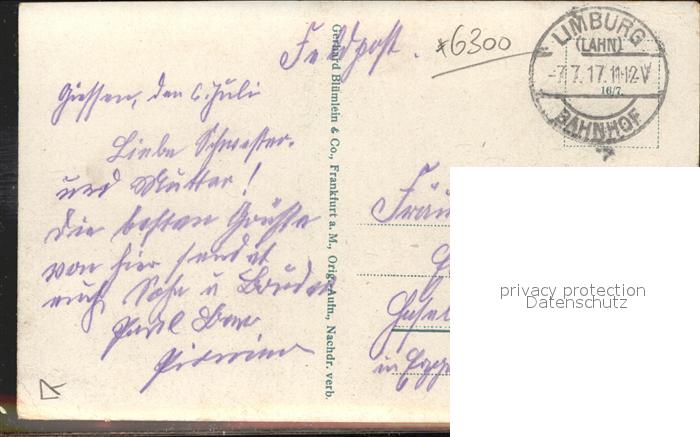 Feldpost.
*6300
LIMBURG
(LAHN)
-7.7.17.11-12V
16/7.
BAHNHOF
Giessen, den 6. Juli
Liebe Schwester
und Mutter!
Die besten Grüsse
von hier sendet
euch Sohn u Bruder
Paul
Gerhard Blümlein & Co., Frankfurt a. M., Orig.-Aufn., Nachdr. verb.
privacy protection
Datenschutz